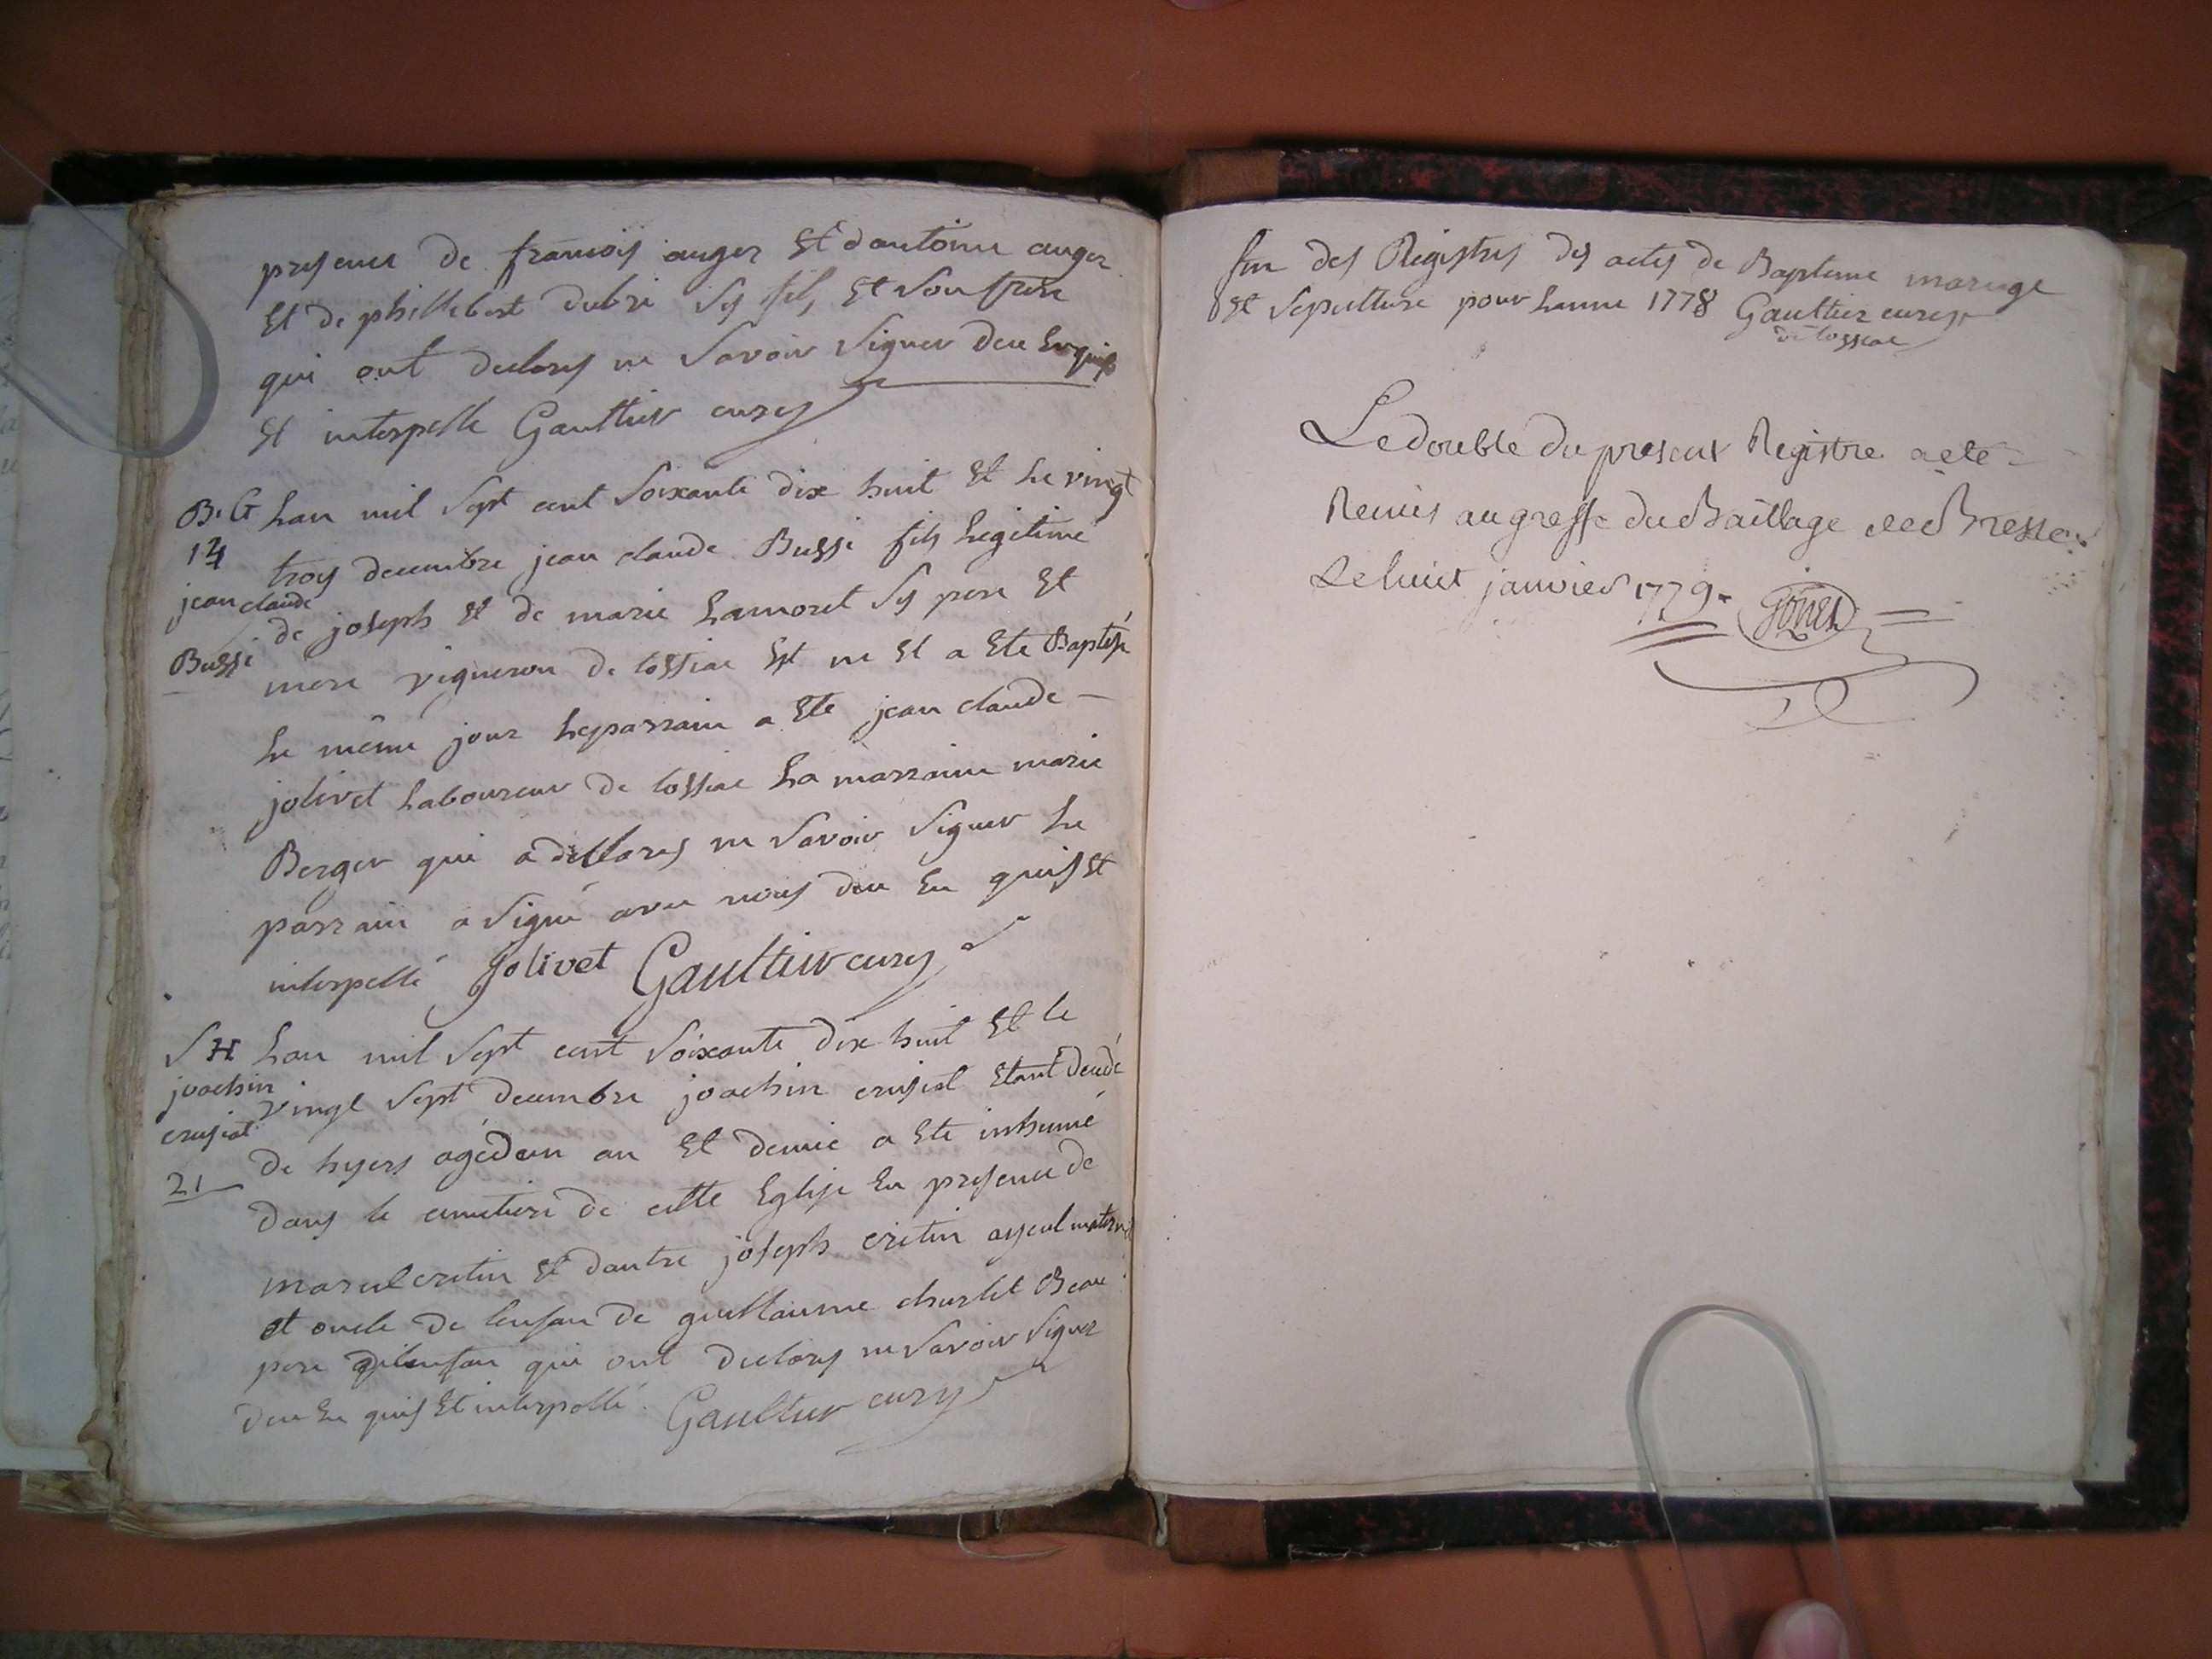 presence de francois auger Et dantoine auger
Et de phillebert dubri ses fils Et son frere
qui ont declares ne savoir signer deu Enquis
Et interpelle Gaulthier curez
B. G lan mil sept cent soixante dix huit Et le vingt
14 trois decembre jean claude Bussi fils legitime
jean claude de joseph Et de marie lamoret ses pere Et
Bussi mere vigneron de tossiac Est ne Et a Ete Baptise
le même jour le parrain a Ete jean claude
jolivet laboureur de tossiac la marraine marie
Berger qui a dellares ne savoir signer le
parrain a signé avec nous deu En quis Et
interpellé Jolivet Gaulthier curez
S H lan mil sept cent soixante dix huit Et le
joachin vingt sept decembre joachin crusiat Etant decedé
crusiat de hyers agé dun an Et demie a Ete inhumé
21 dans le cimetiere de cette Eglise En presence de
marcel cretin Et dautre joseph cretin ayeul maternel
et oncle de lenfan de guillaume churlet Beau
pere de lenfan qui ont declares ne savoir signer
deu En quis Et interpellé. Gaulthier curez
fin des Registres des actes de Bapteme mariage
Et sepulture pour lanne 1778 Gaulthier curez
de tossiac
Le double du present Registre a eté
Remis au greffe du Baillage de Bresse
Le huit janvier 1779.